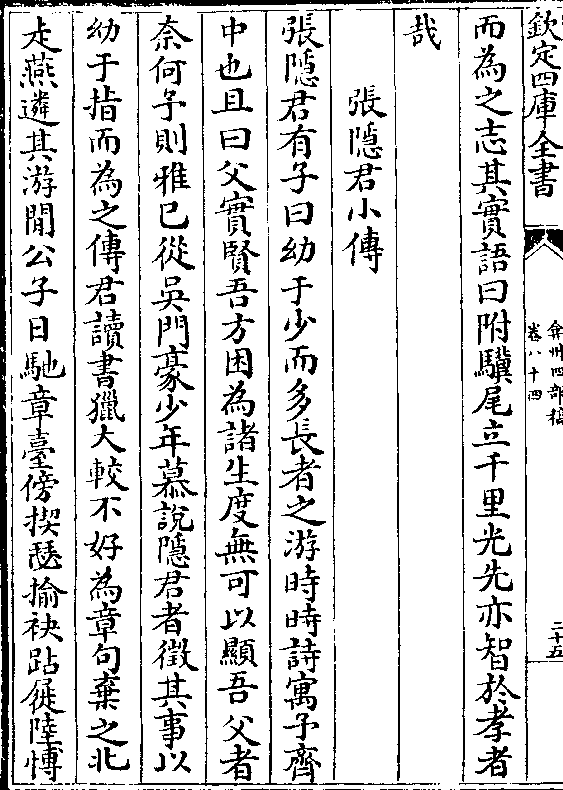 欽定四庫全書
弇州四部稿
卷八十四
二十五
而為之志其實語曰附驥尾立千里光先亦智於孝者
哉
張隱君小傳
張隱君有子曰幼于少而多長者之游時時詩寓予齊
中也且曰父實賢吾方困為諸生度無可以顯吾父者
柰何予則雅已從吳門豪少年慕說隱君者徵其事以
幼于指而為之傳君讀書獵大較不好為章句棄之北
走燕遴其游閒公子日馳章臺傍揳瑟揄袂跕屣陸愽